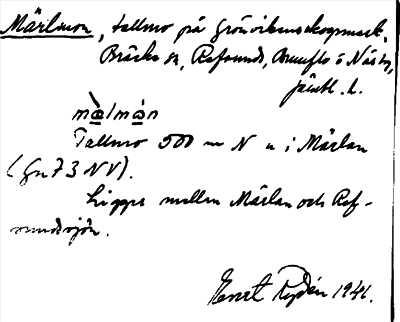 Märlmon, tallmo på Grönviksskogsmark,
Bräcke sn, Refsunds, Brunflo o Näs tg,
Jämtl. l.
mä̀lmón
Tallmo 500 m N u i Märlan
(Gn 73 NV).
Ligger mellan Märlan och Ref-
sundssjön.
Ernst Rydén 1941.